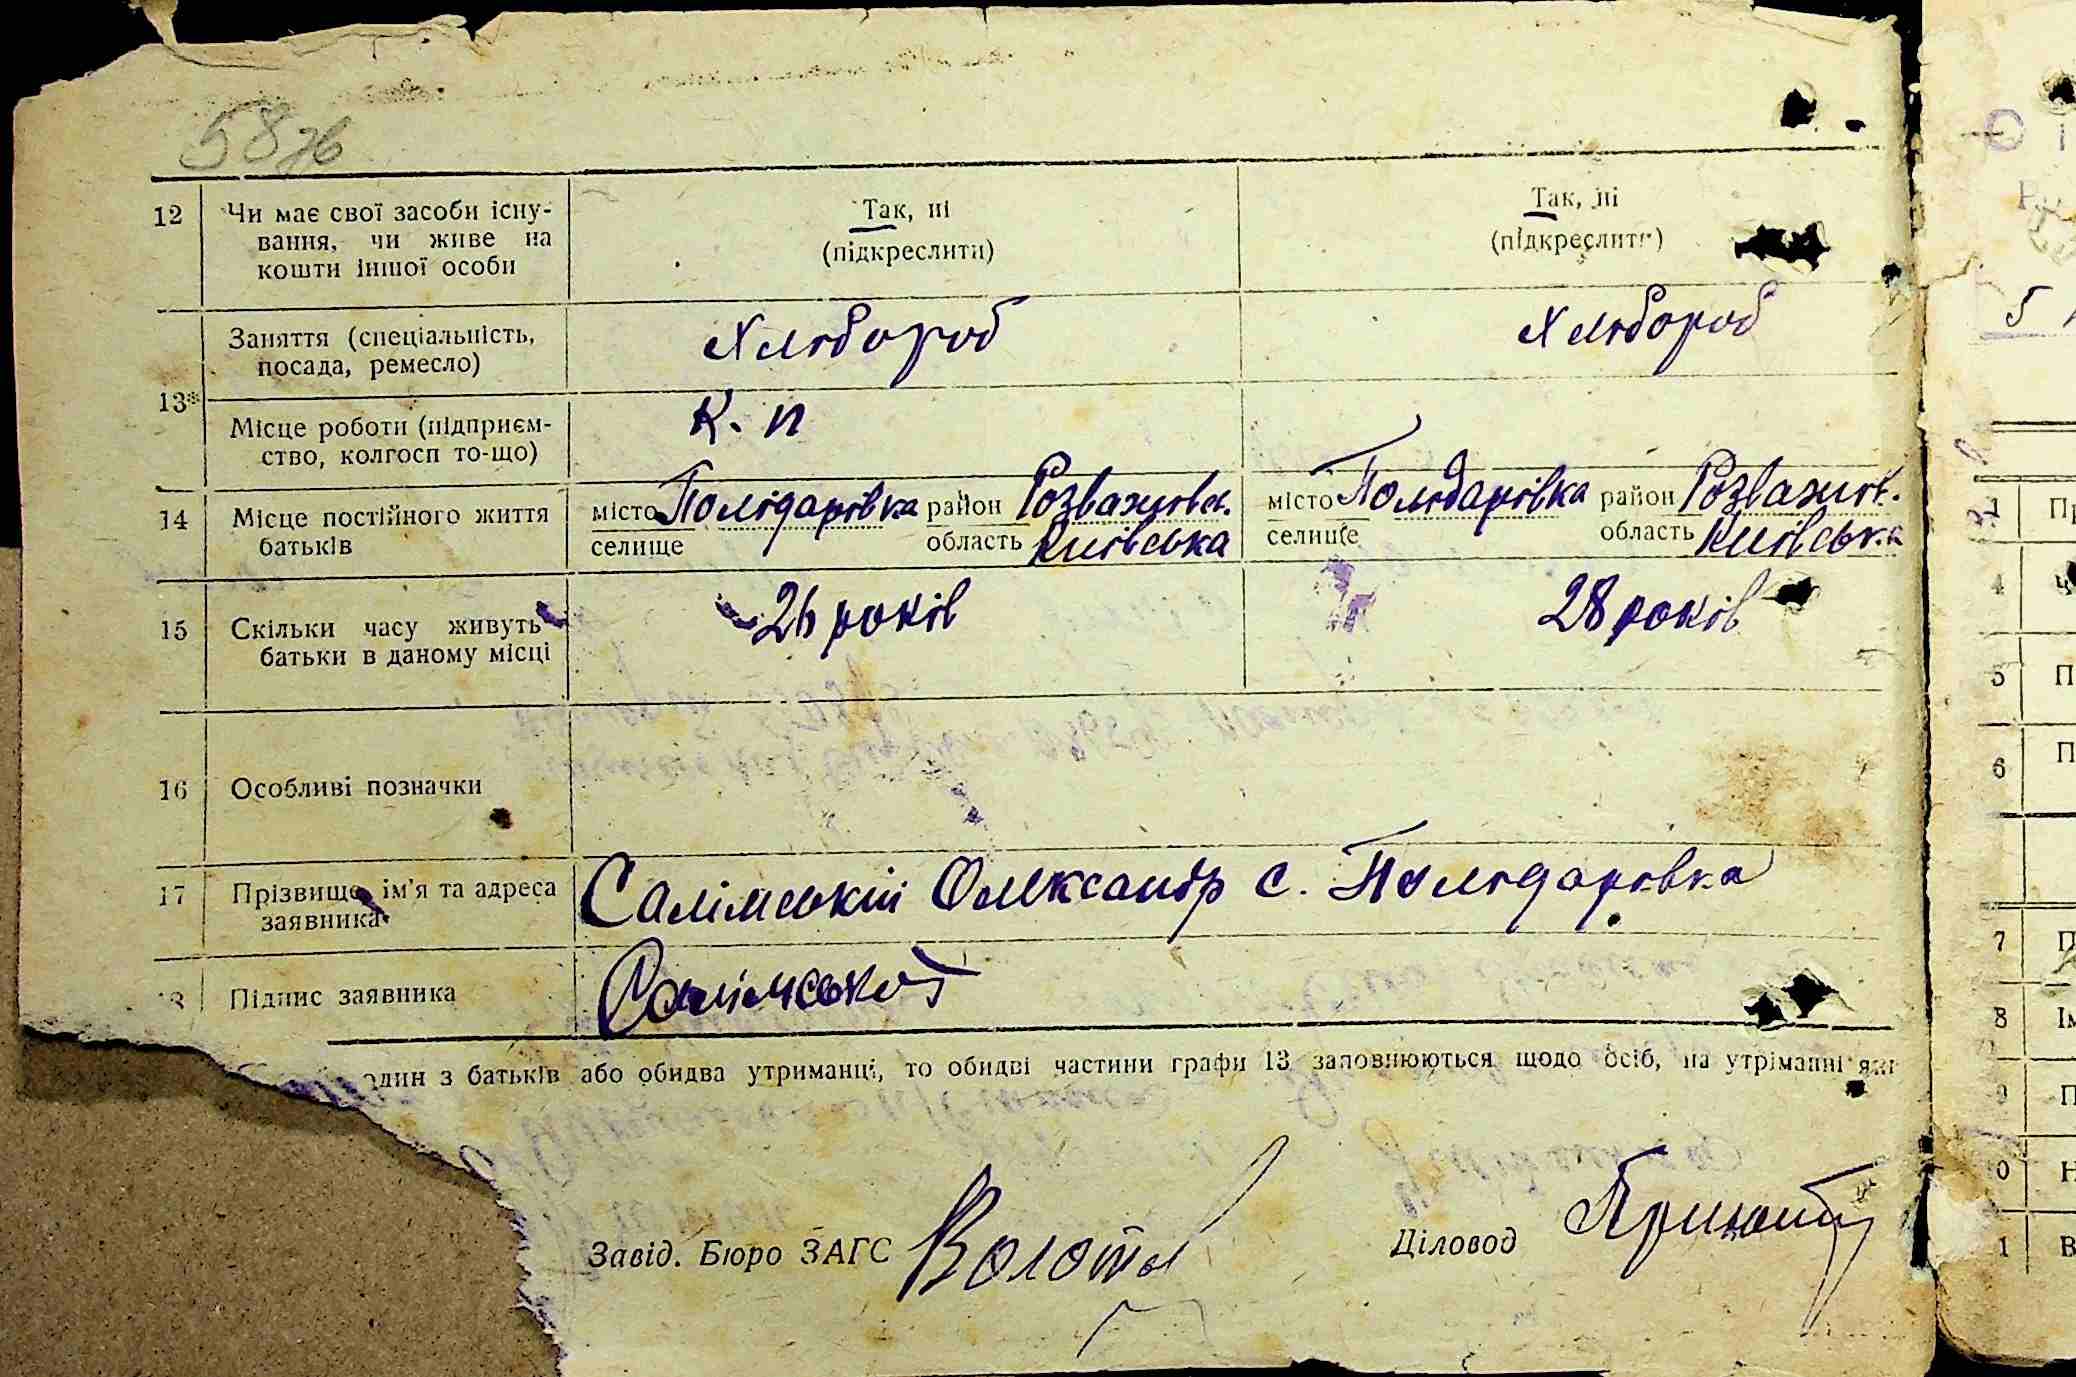 58 зв
12 Чи має свої засоби існу-
вання, чи живе на
кошти іншої особи
Так, ні
(підкреслити)
Так, ні
(підкреслити)
13*
Заняття (спеціальність,
посада, ремесло)
Хлібороб
Хлібороб
Місце роботи (підприєм-
ство, колгосп то-що)
К. п
14 Місце постійного життя
батьків
місто Полідарівка район Розважівськ.
селище область Київська
місто Полідарівка район Розважів.
селище область Київська
15 Скільки часу живуть
батьки в даному місці
26 років
28 років
16 Особливі позначки
17 Прізвище, ім'я та адреса
заявника
Салімський Олександр с. Полідарівка
Підпис заявника
один з батьків або обидва утриманці, то обидві частини графи 13 заповнюються щодо осіб, на утріманні
Завід. Бюро ЗАГС
Діловод